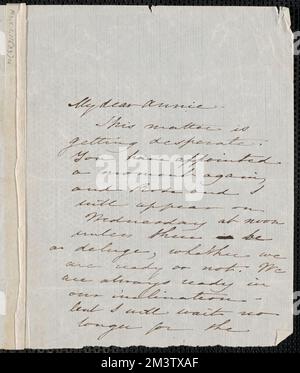 My dear Annie.
This matter is
getting desperate.
You have appointed
a moment again,
and Rob and I
will appear on
Wednesday at noon
unless there be
a deluge, whether we
are ready or not. We
are always ready in
our inclination -
but I will wait no
longer for the
alamy
Image ID: 2M3TXAF
www.alamy.com